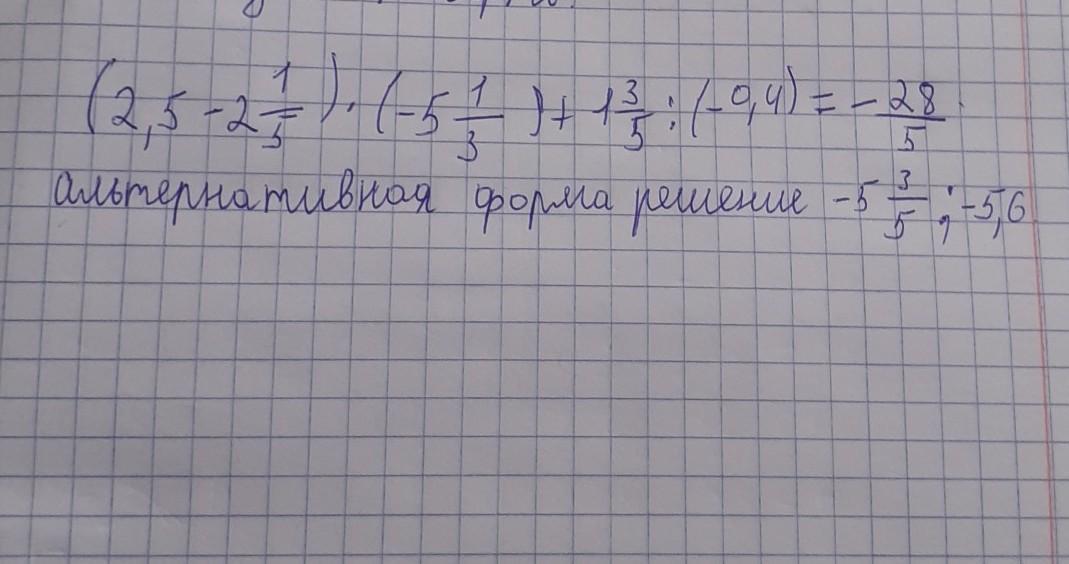 (2,5 - 2 1/5) · (-5 1/3) + 1 3/5 : (-0,4) = - 28/5
альтернативная форма решение -5 3/5 ; -5,6